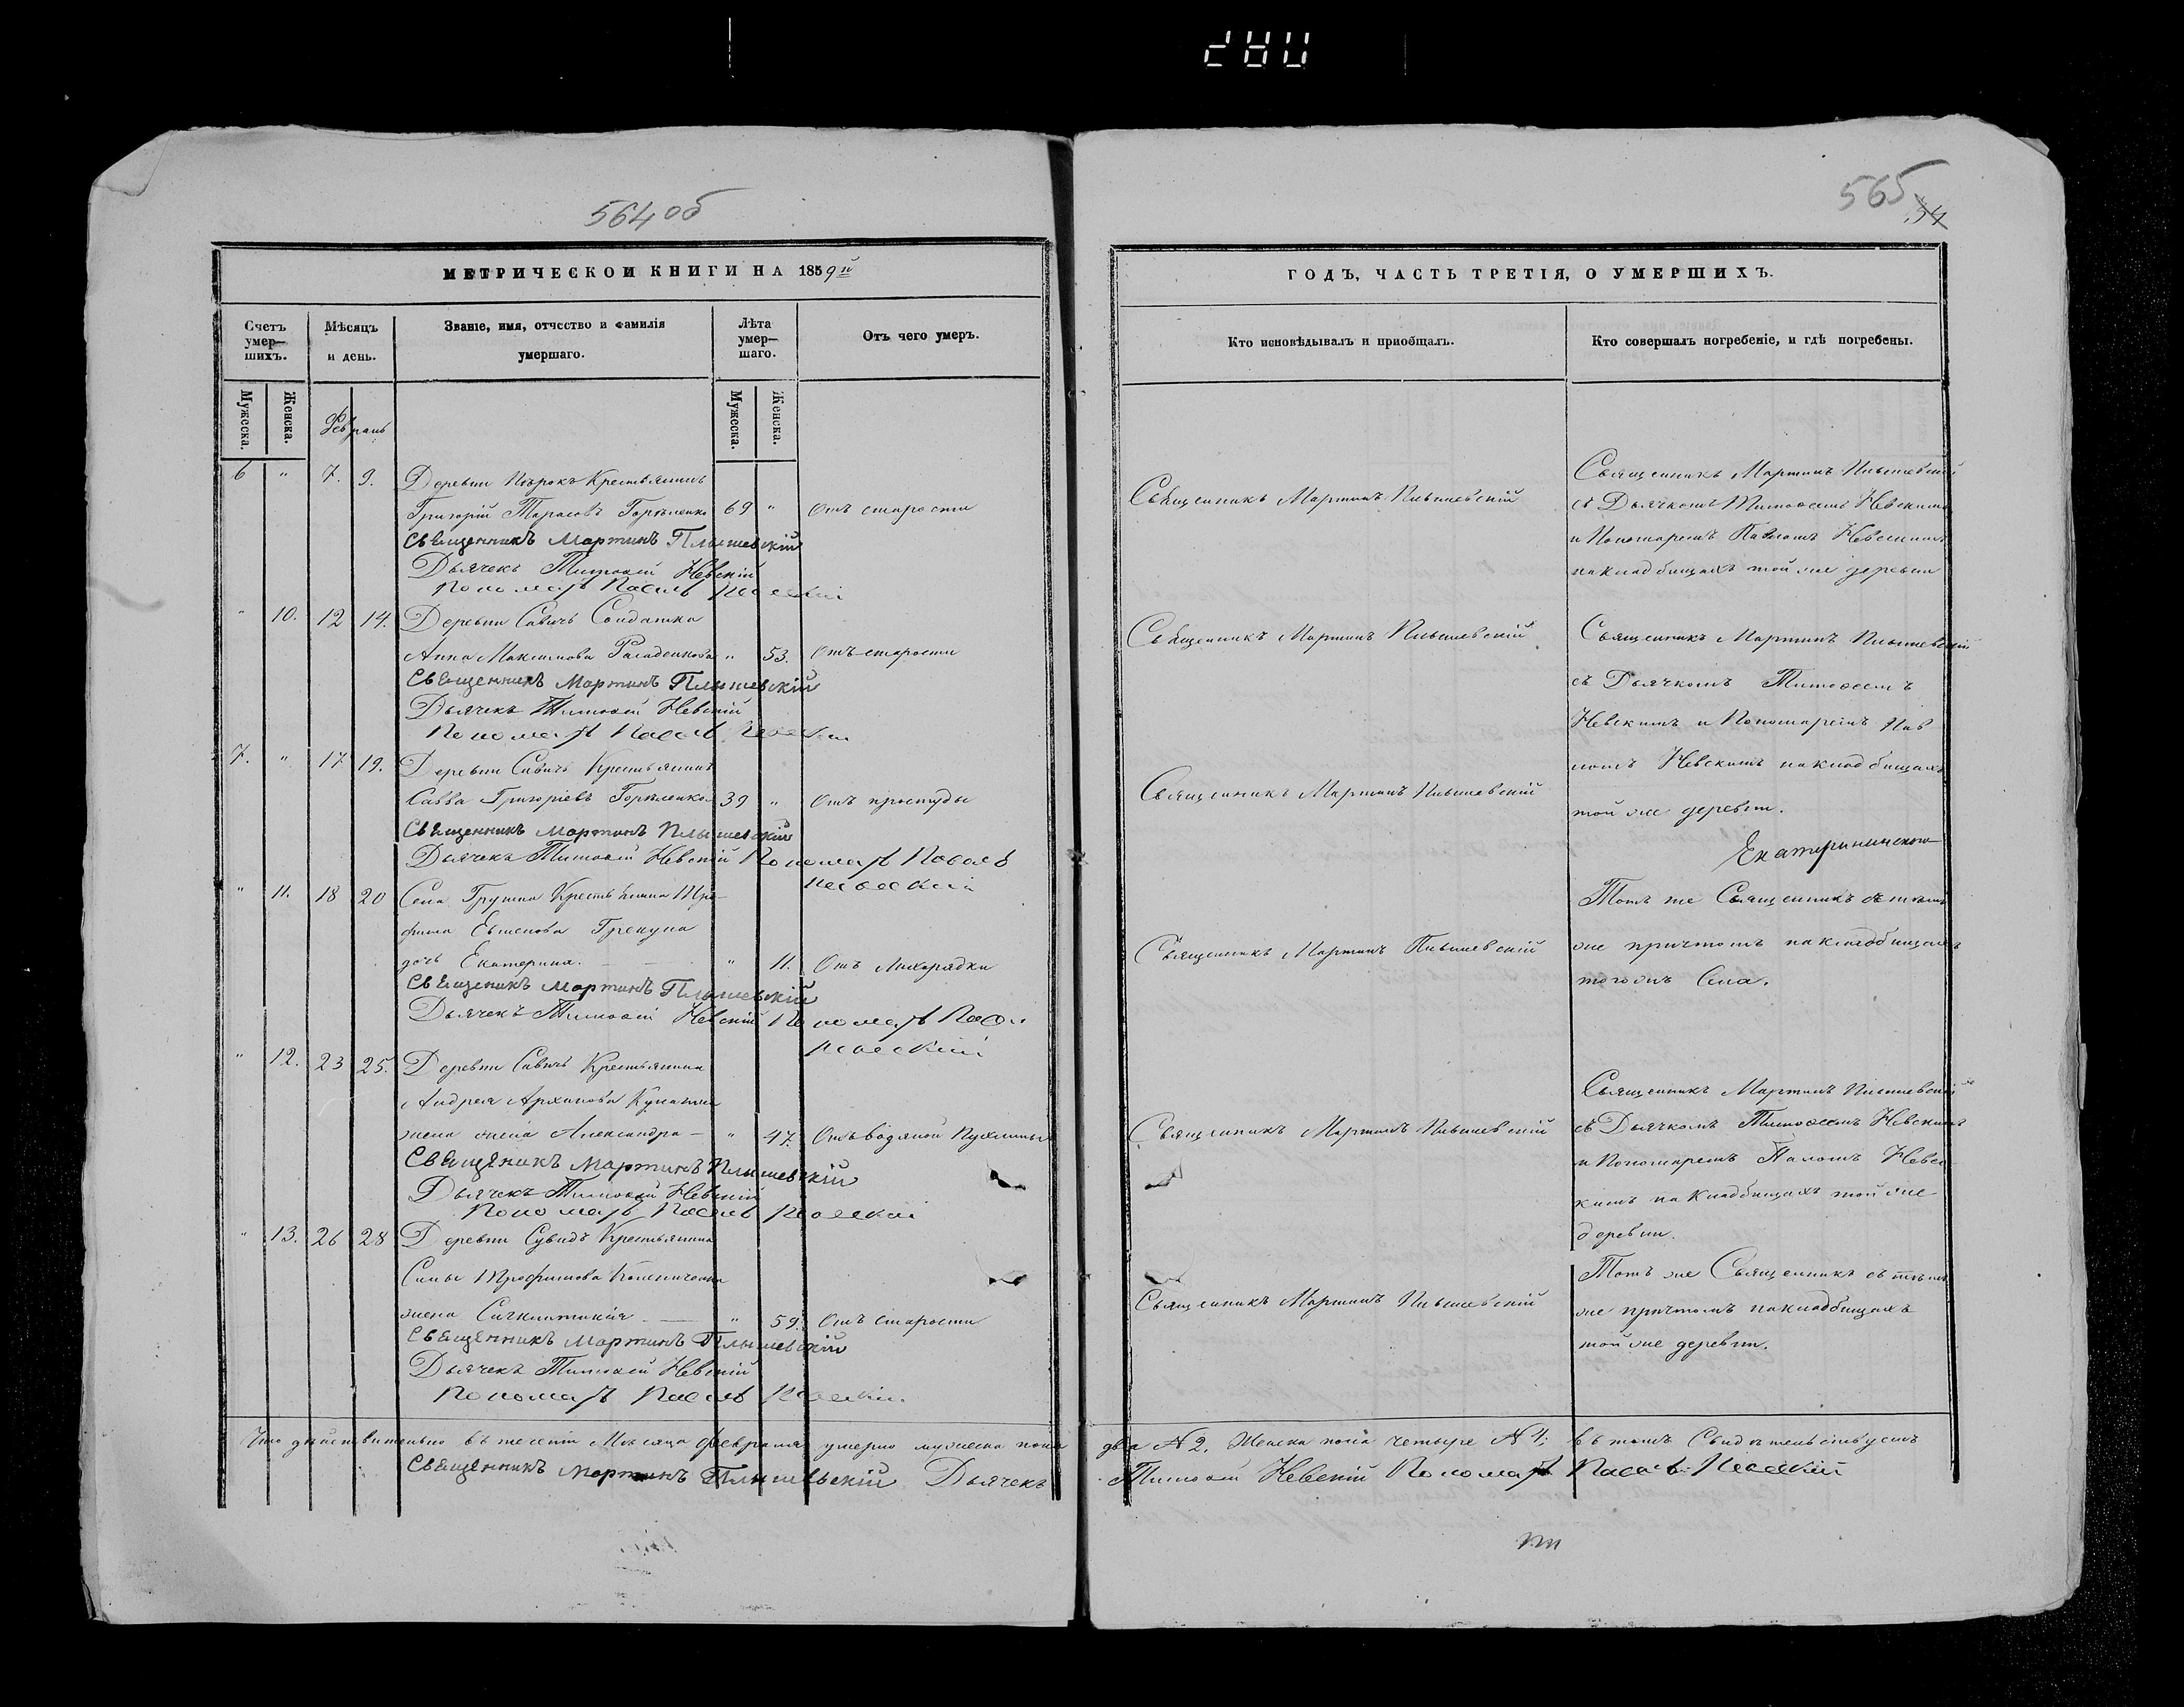 564об
МЕТРИЧЕСКОЙ КНИГИ НА 1859й
Счетъ умер-шихъ.
Мѣсяцъ и день.
Званіе, имя, отчество и фамилія умершаго.
Лѣта умер-шаго.
Отъ чего умеръ.
Мужеска.
Женска.
Мужеска.
Женска.
Февраль
6 " 7. 9. Деревни Крестьянинъ
Григорій Тарасовъ 69 " Отъ старости
Священникъ Мартинъ Плышевскій
Дьячекъ Тимофей Невскій
Пономарь Павелъ Невскій
" 10. 12 14. Деревни Савичъ Солдатка
Анна Максимова " 53. Отъ старости
Священникъ Мартинъ Плышевскій
Дьячекъ Тимофей Невскій
Пономарь Павелъ Невскій
7. " 17 19. Деревни Савичъ Крестьянинъ
Савва Григоріевъ 39 " Отъ простуды
Священникъ Мартинъ Плышевскій
Дьячекъ Тимофей Невскій Пономарь Павелъ
Невскій
" 11. 18 20 Села Грушна Крестьянина Тро-
фима Евменова Грекуна
дочь Екатерина. " 11. Отъ Лихорадки
Священикъ Мартинъ Плышевскій
Дьячекъ Тимофей Невскій Пономарь Павелъ
Невскій
" 12. 23 25. Деревни Савичъ Крестьянина
Андрея Архипова
жена жена Александра " 47. Отъ водяной Пухлины
Священикъ Мартинъ Плышевскій
Дьячекъ Тимофей Невскій
Пономарь Павелъ Невскій
" 13. 26 28 Деревни Сувидъ Крестьянина
Силы Трофимова
жена " 59. Отъ Старости
Священникъ Мартинъ Плышевскій
Дьячекъ Тимофей Невскій
Пономарь Павелъ Невскій
Что дѣйствительно въ теченіи Мѣсяца Февраля умерло мужеска пола
Священникъ Мартинъ Плышевскій Дьячекъ
565
34
ГОДЪ, ЧАСТЬ ТРЕТІЯ, О УМЕРШИХЪ.
Кто исповѣдывалъ и пріобщалъ.
Кто совершалъ погребеніе, и гдѣ погребены.
Священникъ Мартинъ Плышевскій
Священникъ Мартинъ Плышевскій
съ Дьячкомъ Тимофеемъ Невскимъ
и Пономаремъ Павломъ Невскимъ
на кладбищахъ той же деревни
Священникъ Мартинъ Плышевскій
Священникъ Мартинъ Плышевскій
съ Дьячкомъ Тимофеемъ
Невскимъ и Пономаремъ Пав
ломъ Невскимъ на кладбищахъ
той же деревни.
Священникъ Мартинъ Плышевскій
Екатерининскою
Священникъ Мартинъ Плышевскій
Тотъ же Священникъ съ тѣмъ
же причтомъ на кладбищахъ
тогожъ Села.
Священникъ Мартинъ Плышевскій
Священникъ Мартинъ Плышевскій
съ Дьячкомъ Тимофеемъ Невскимъ
и Пономаремъ Паломъ Невс
кимъ на Кладбищахъ той же
деревни.
Священикъ Мартинъ Плышевскій
Тотъ же Священникъ съ тѣмъ
же причтомъ на кладбищахъ
той же деревни.
два № 2. Женска пола четыре № 4; въ томъ Свидѣтельствуемъ
Тимофей Невскій Пономарь Павелъ Невскій